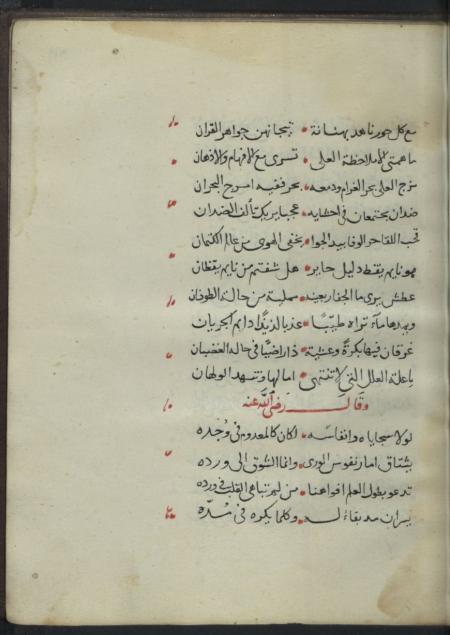 مع كل حور ناهد بهنانة • تيجانهن جواهر القران
ما همتى الا ملاحظة العلى • تسرى مع الافهام والاذهان
مزج العلى بحر الغرام ودمعه • بحر ففيه امرج البحران
ضدان يجتمعان فى احشايه • عجبا يريك تألف الضدان
تحت اللقا حر الوفا بيد الجوا • يخفى الهوى من عالم الكتمان
هو نايم يقظ دليل حاير • هل شفتم من نايم يقظان
عطش يرى ما الجفا بعينه • من حالة الطوفان
وبه رها ماء تراه طيبا • عذبا لذيذا دايم الجريان
غرقان فيها بكرة وعشية • ذا راضيا فى حاله الغضبان
يا علة العلل التى لا تنتهى • امالها وتنهد الولهان
وقال رضى الله عنه
لولا سجاياه وانفاسه • لكان كالمعدوم فى وجده
يشتاق امار نفوس الورى • وانا الشوق الى ورده
تدعو بطول العلم افواهنا • من لم تباهى القلب فى ورده
يرى ان مد بقاء له • وكلما يكره فى مده